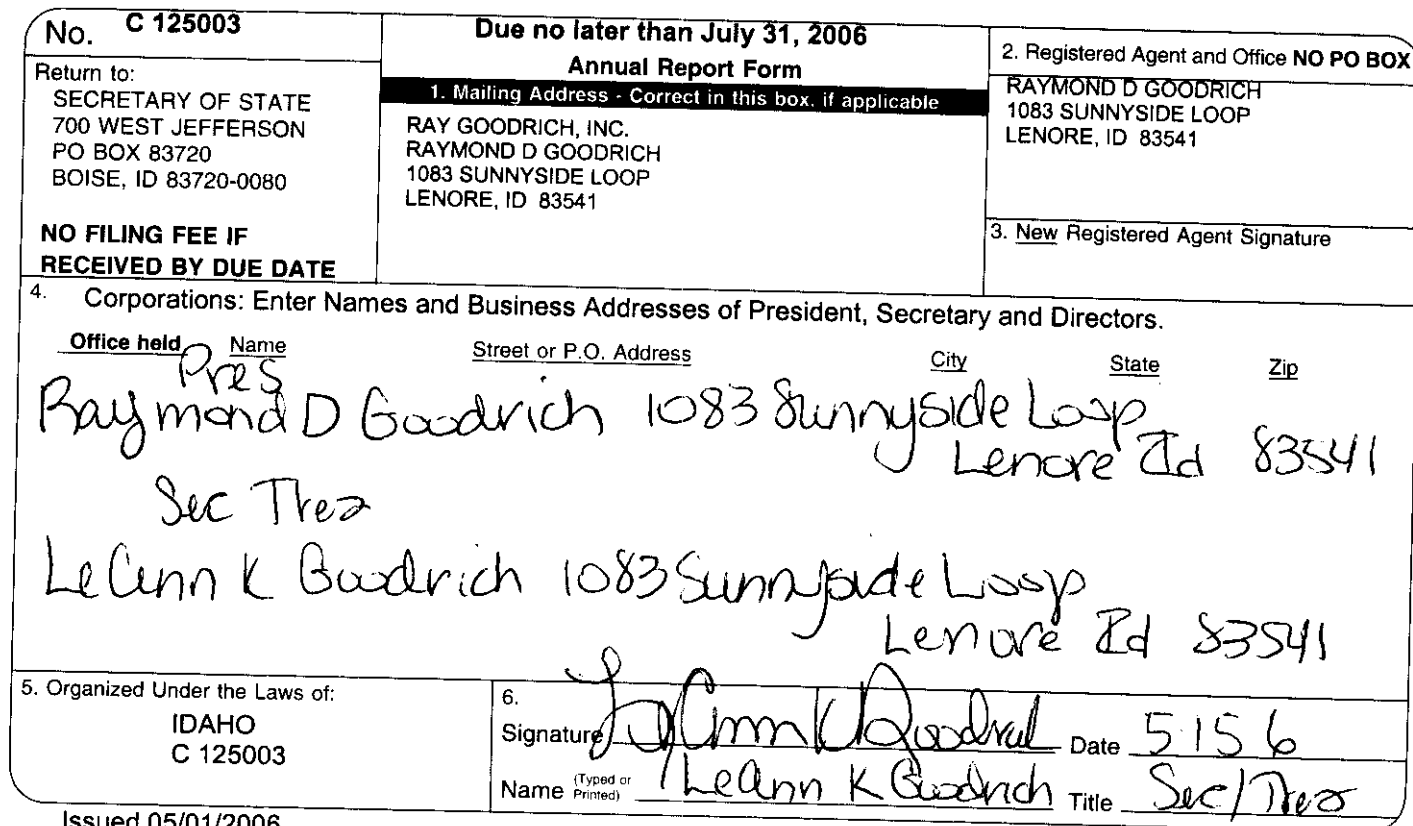 No. C 125003
Return to:
SECRETARY OF STATE
700 WEST JEFFERSON
PO BOX 83720
BOISE, ID 83720-0080
NO FILING FEE IF
RECEIVED BY DUE DATE
Due no later than July 31, 2006
Annual Report Form
1. Mailing Address - Correct in this box, if applicable
RAY GOODRICH, INC.
RAYMOND D GOODRICH
1083 SUNNYSIDE LOOP
LENORE, ID 83541
2. Registered Agent and Office NO PO BOX
RAYMOND D GOODRICH
1083 SUNNYSIDE LOOP
LENORE, ID 83541
3. New Registered Agent Signature
4. Corporations: Enter Names and Business Addresses of President, Secretary and Directors.
Office held Name Street or P.O. Address City State Zip
Pres
Raymond D Goodrich 1083 Sunnyside Loop
Lenore Id 83541
Sec Trea
LeAnn K Goodrich 1083 Sunnyside Loop
Lenore Id 83541
5. Organized Under the Laws of:
IDAHO
C 125003
6.
Signature LeAnn K Goodrich Date 5 15 6
Name (Typed or Printed) LeAnn K Goodrich Title Sec/Trea
Issued 05/01/2006